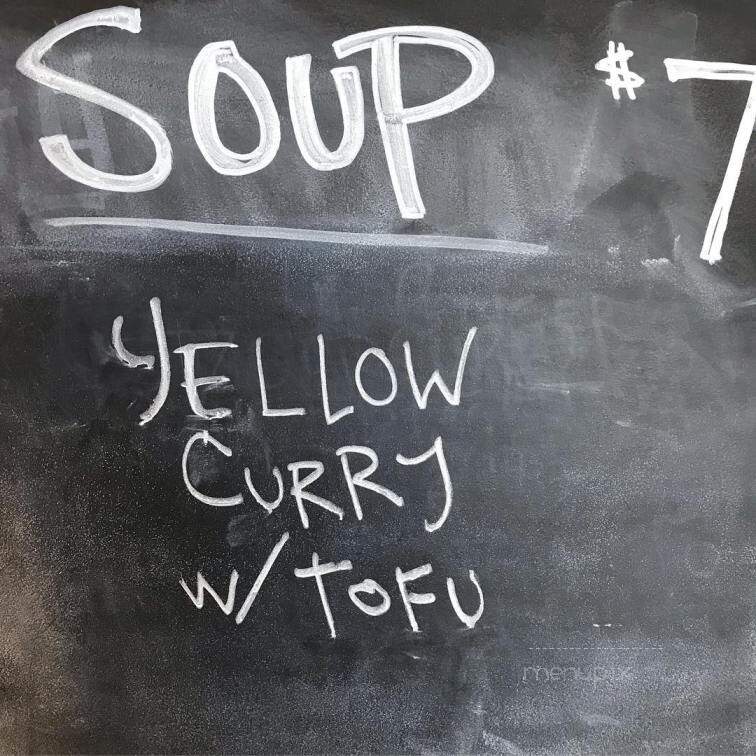 SOUP $7
YELLOW
CURRY
W/ TOFU
menupix